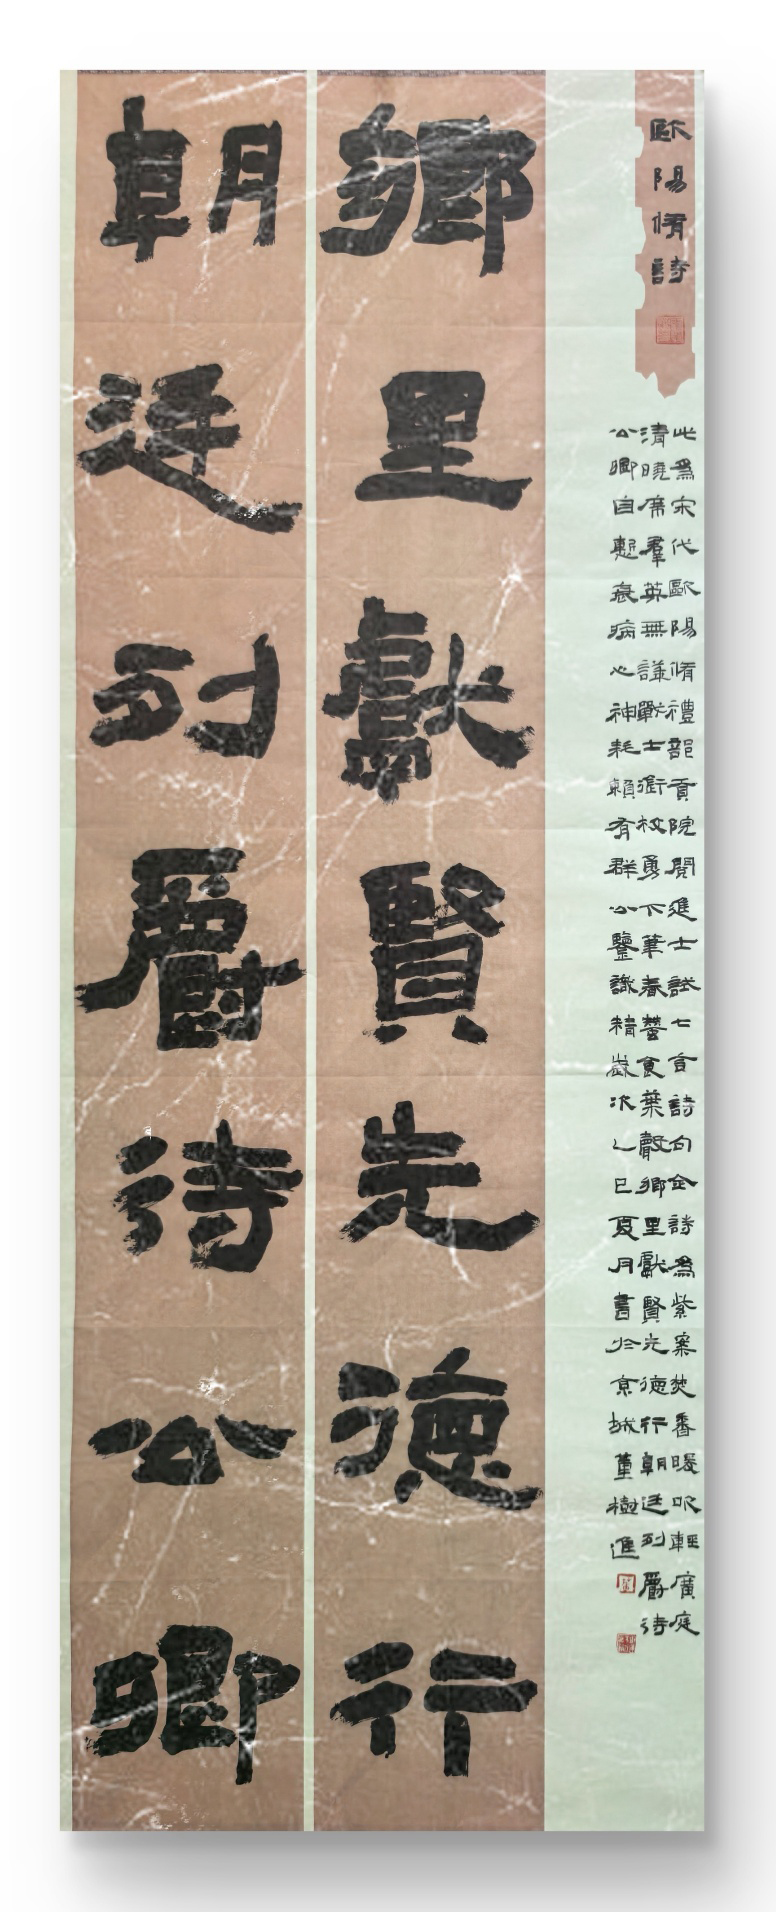 歐陽脩詩
此爲宋代歐陽脩禮部貢院閱進士試七言詩句全詩爲紫案焚香暖吹輕廣庭
清曉席羣英無譁戰士銜枚勇下筆春蠶食葉聲鄉里獻賢先德行朝廷列爵待
公卿自慙衰病心神耗賴有群公鑒識精歲次乙巳夏月書於京城董樹進
鄉里獻賢先德行
朝廷列爵待公卿